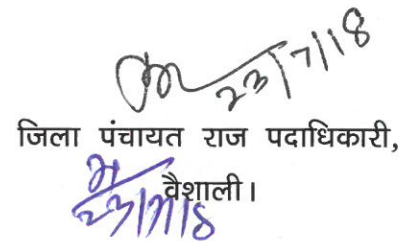 23/7/18
जिला पंचायत राज पदाधिकारी,
वैशाली।
23/7/18